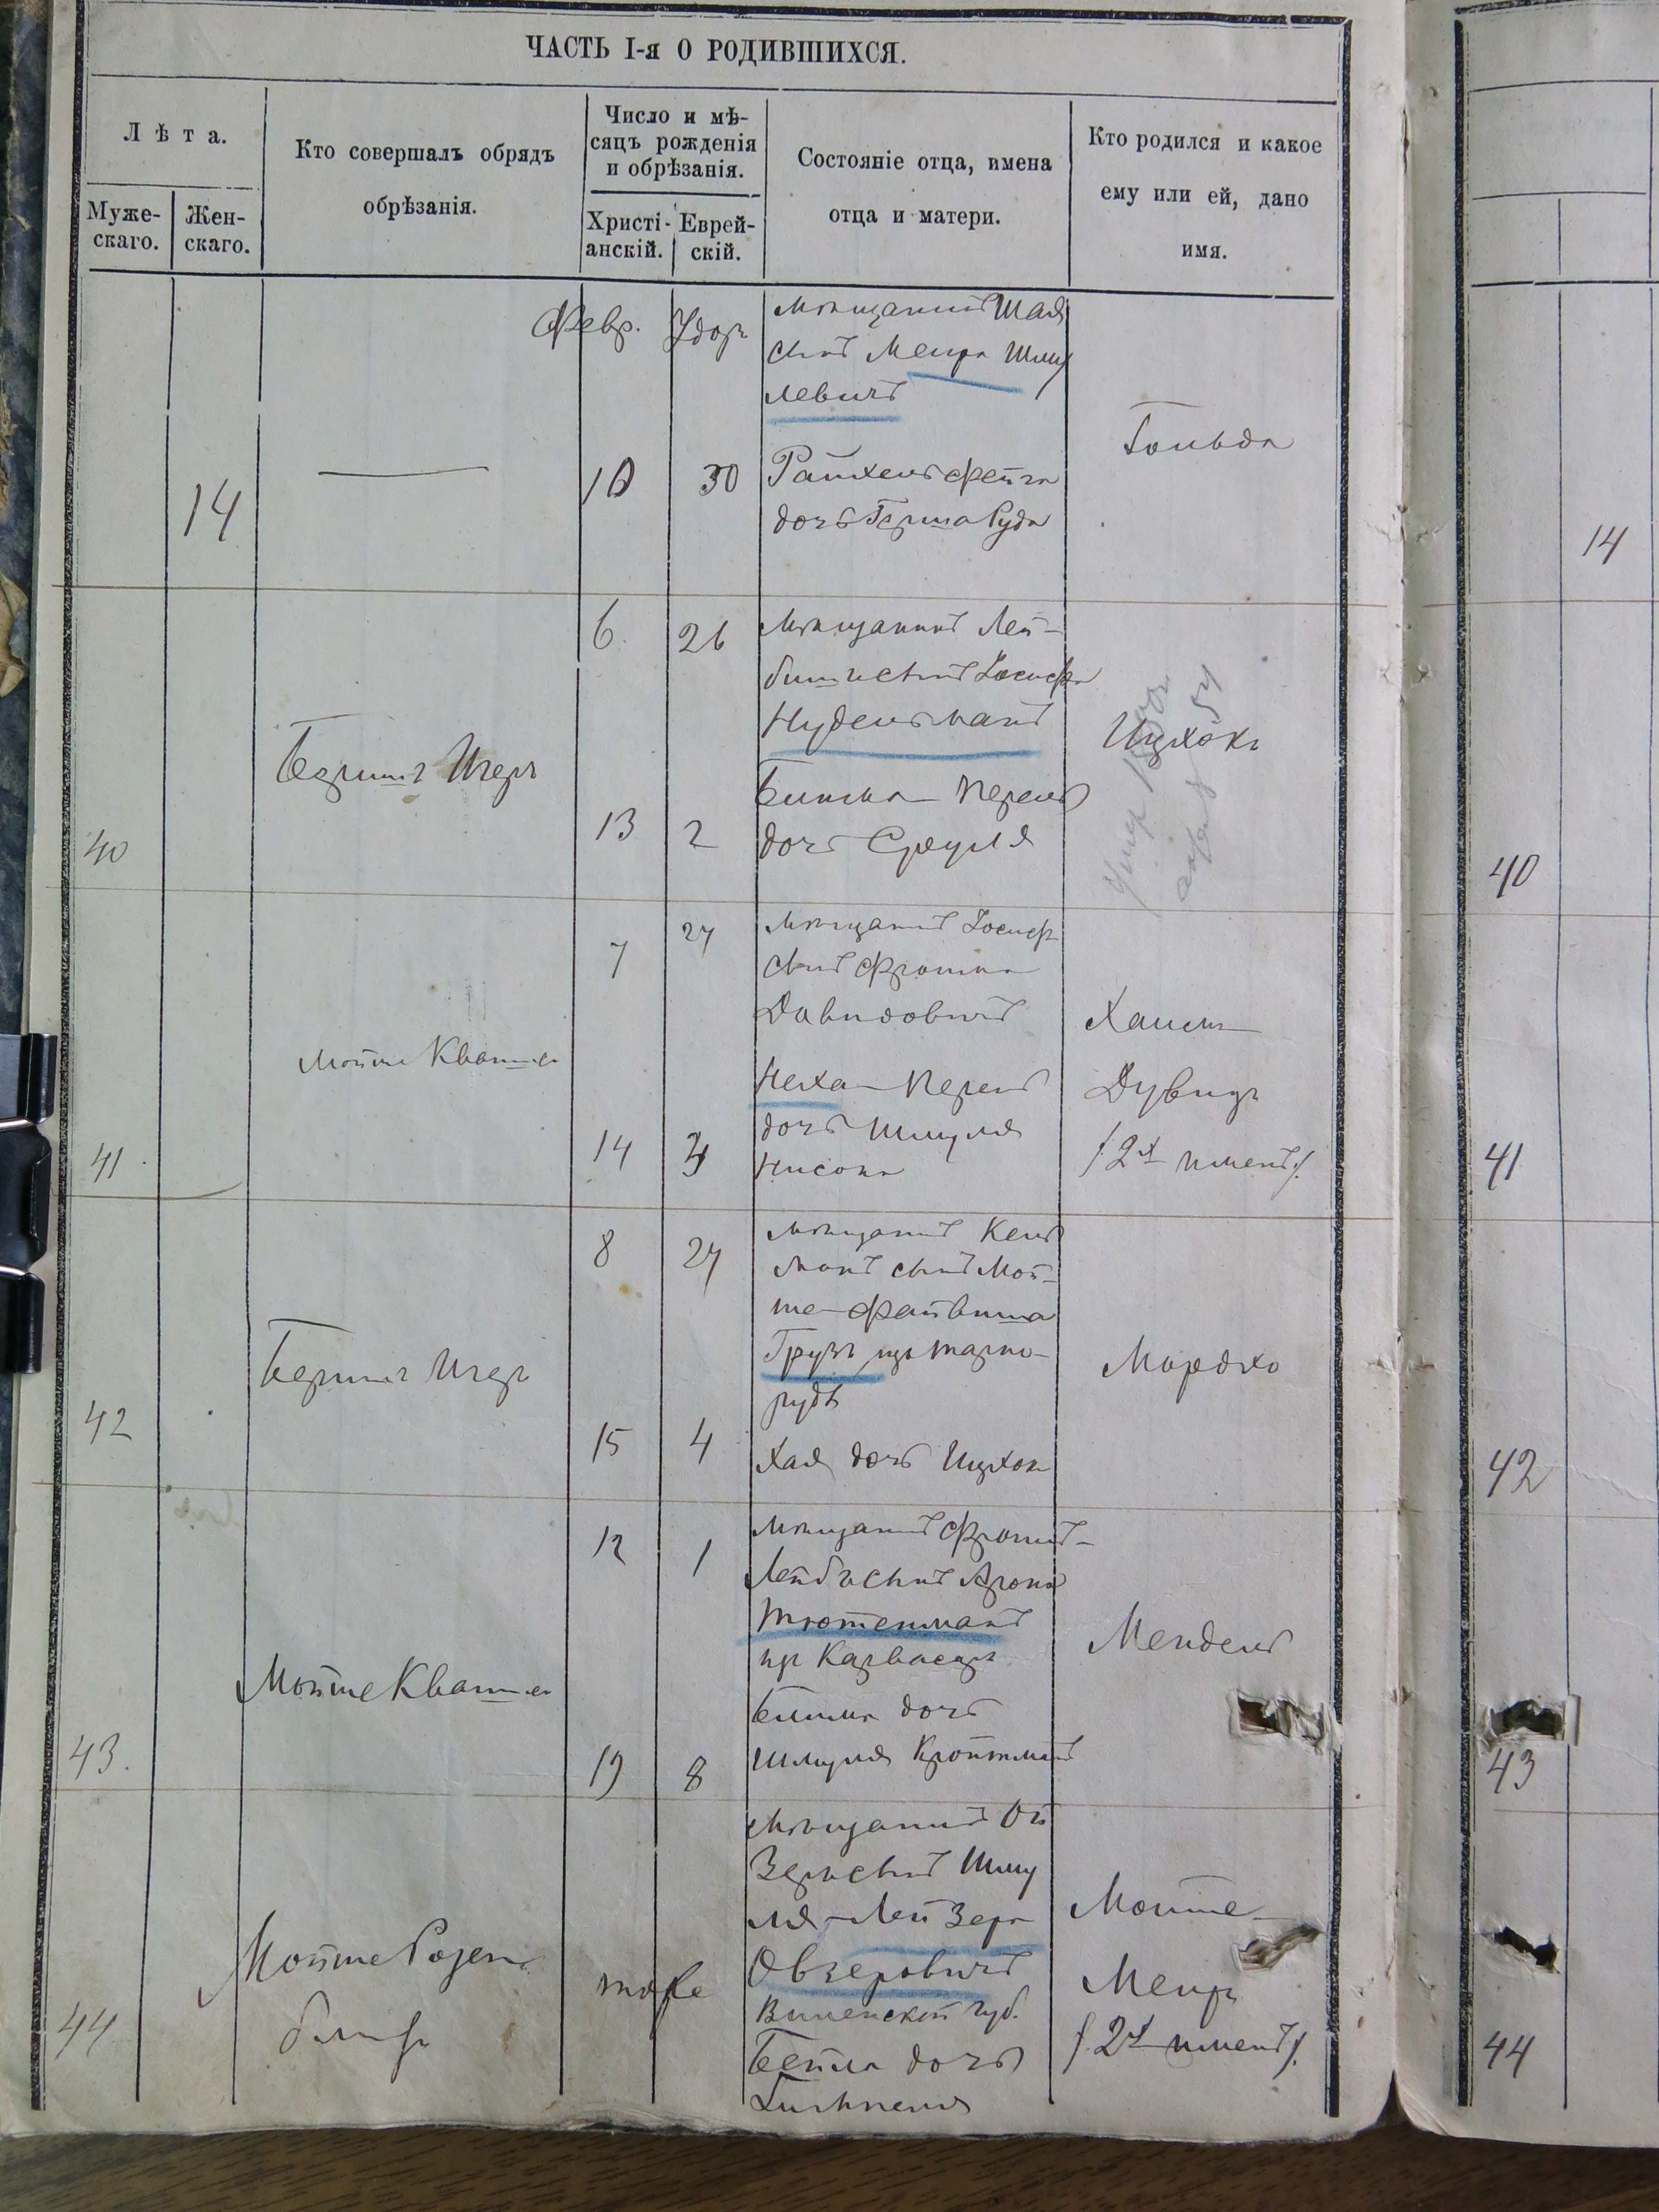 ЧАСТЬ I-я О РОДИВШИХСЯ.
Лѣта.
Муже-
скаго.
Жен-
скаго.
Кто совершалъ обрядъ
обрѣзанія.
Число и мѣ-
сяцъ рожденія
и обрѣзанія.
Христі-
анскій.
Еврей-
скій.
Состояніе отца, имена
отца и матери.
Кто родился и какое
ему или ей, дано
имя.
14
Февр.
10
30
Мѣщанинъ Шая
сынъ Меира Шму
левичъ
Фейга
дочь Герша Руда
Гольда
14
40
Бериш Игер
6
26
13
2
Мѣщанинъ Лей-
сынъ Иосифа
Нудельманъ
Перель
дочь Сруля
Ицхокъ
Умер
40
41
Мойше Кваша
7
27
14
3
Мѣщанинъ Иосиф
сынъ Фроима
Давидовичъ
Неха Перель
дочь Шмуля
Нисона
Хаим
Дувидъ
/2х именъ/.
41
42
Бериш Игер
8
27
15
4
Мѣщанинъ Кель
манъ сынъ Мой-
ше-Файвиша
Грузъ изъ Тарно-
руды
Хая дочь Ицхока
Мордхо
42
43.
Мойше Кваша
12
1
19
8
Мѣщанинъ Фроимъ-
Лейба сынъ Арона
Тютенманъ
из
Бейла дочь
Шмуля Кройтманъ
Мендель
43
44
Мойше Розен
тоже
Мѣщанинъ Ой
зеръ сынъ Шму
ля-Лейзера
Овзеровичъ
Виленской губ.
Бейла дочь
Мойше
Меиръ
/2х именъ/.
44